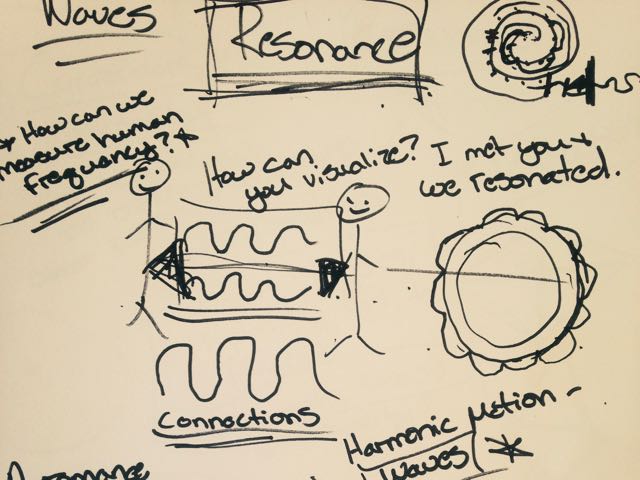 Waves
Resonance
* How can we
measure human
frequency? *
How can
you visualize?
I met you +
we resonated.
Connections
Harmonic Motion -
Waves